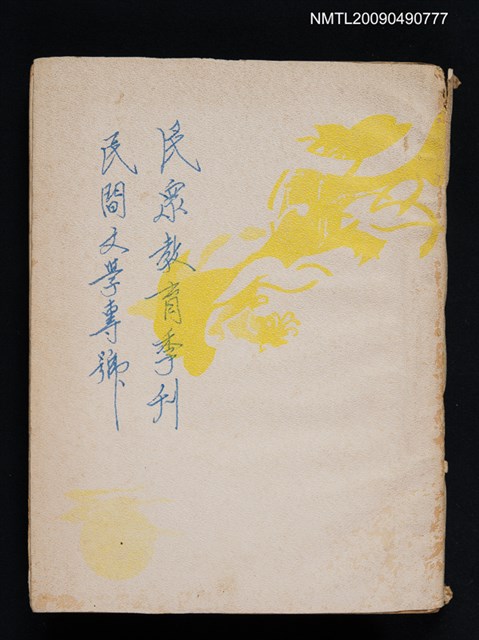 NMTL20090490777
民眾教育季刊
民間文學專號